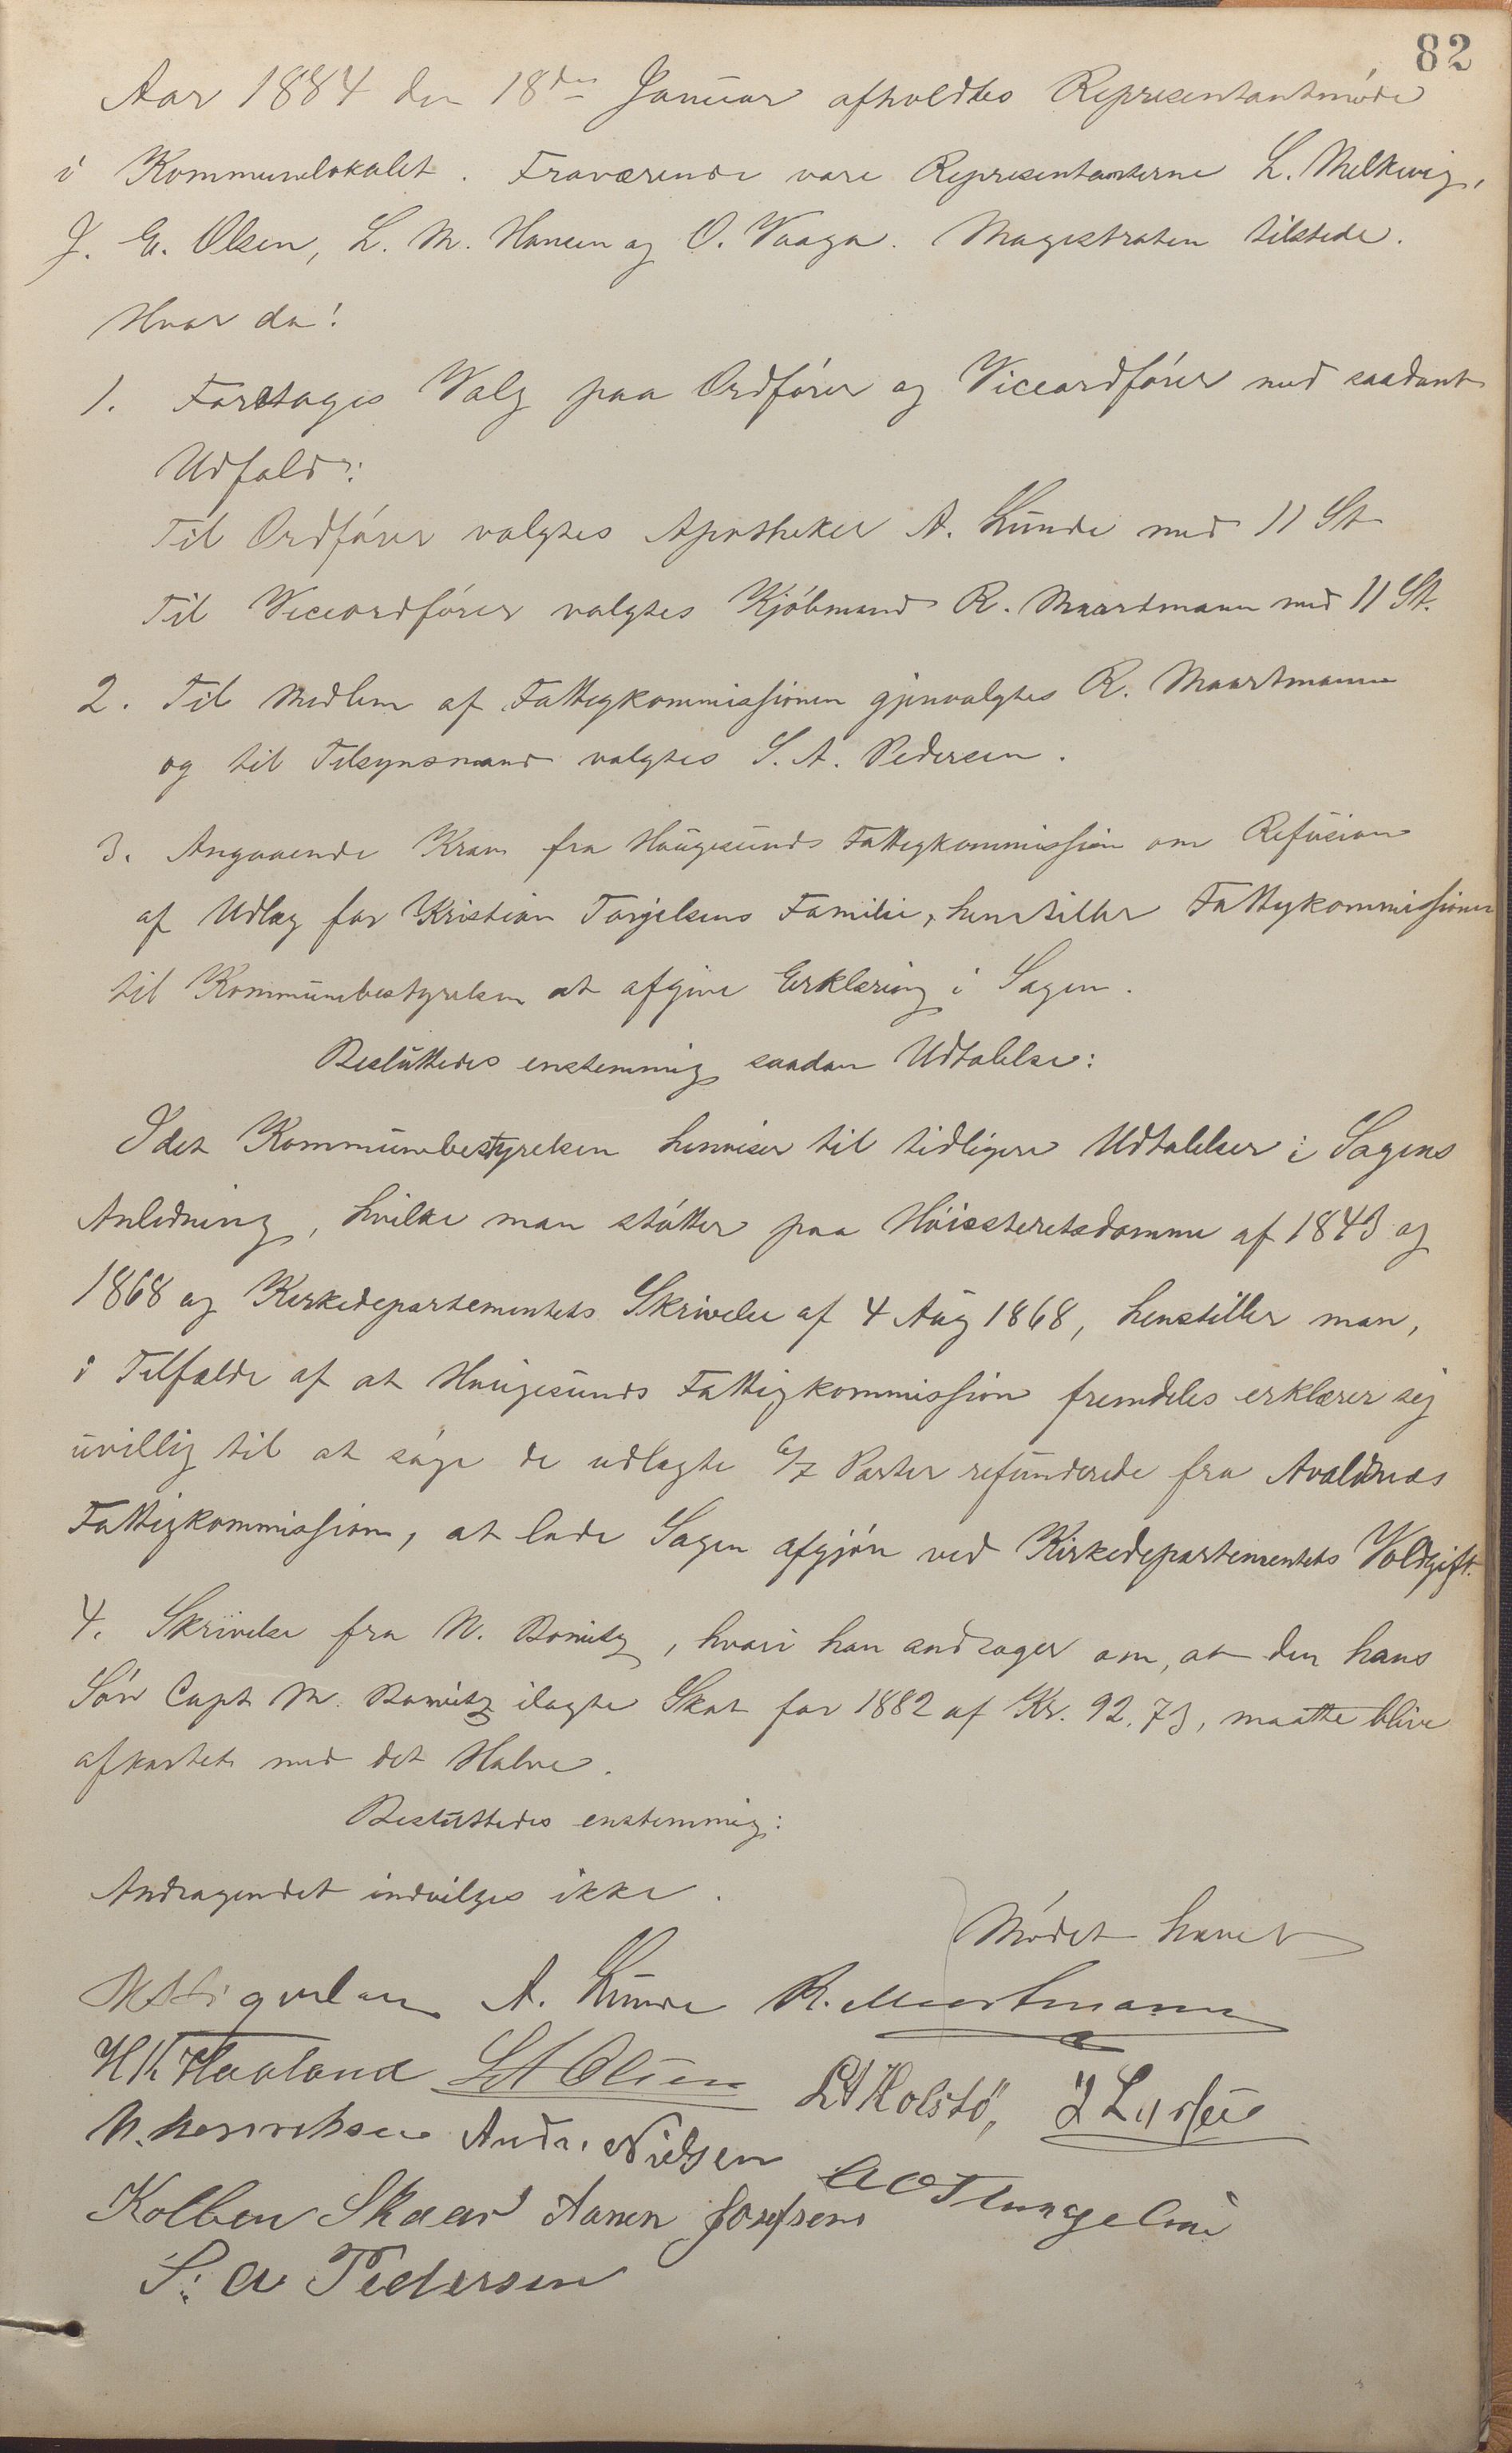 82
Aar 1884 den 18de Januar afholdtes Representantmøde
i Kommunelokalet. Fraværende vare Representanterne L. Melkevig,
J. G. Olsen, L. M. Hansen og O. Vaaga. Magistraten tilstede.
Hvor da!
1. Foretoges Valg paa Ordfører og Viceordfører med saadant
Udfald:
Til Ordfører valgtes Apotheker A. Lunde med 11 St
Til Viceordfører valgtes Kjøbmand R. Maartmann med 11 St.
2. Til Medlem af Fattigkommissionen gjenvalgtes R. Maartmann
og til Tilsynsmand valgtes S. A. Pedersen.
3. Angaaende Krav fra Haugesunds Fattigkommission om Refusion
af Udlæg for Kristian Torjelsens Familie, henstiller Fattigkommissionen
til Kommunebestyrelsen at afgive Erklæring i Sagen.
Besluttedes enstemmig saadan Udtalelse:
Idet Kommunebestyrelsen henviser til tidligere Udtalelser i Sagens
Anledning, hvilke man støtter paa Høiesteretsdomme af 1843 og
1868 og Kirkedepartementets Skrivelse af 4 Aug 1868, henstiller man,
i Tilfælde af at Haugesunds Fattigkommission fremdeles erklærer sig
uvillig til at søge de udlagte 6/7 Parter refunderede fra Avaldsnæs
Fattigkommission, at lade Sagen afgjøre ved Kirkedepartementets Voldgift.
4. Skrivelse fra N. , hvori han andrager om, at den hans
Søn Capt M. ilagte Skat for 1882 af Kr. 92.73, maatte blive
afkortet med det Halve.
Besluttedes enstemmig:
Andragendet indvilges ikke.
Mødet hævet
A. Lunde R. Maartmann
Haaland Olsen L A Holstø,
N. Henrichsen Andr. Nielsen
Kolben Skaar Aanen Josefsen
S. A Pedersen